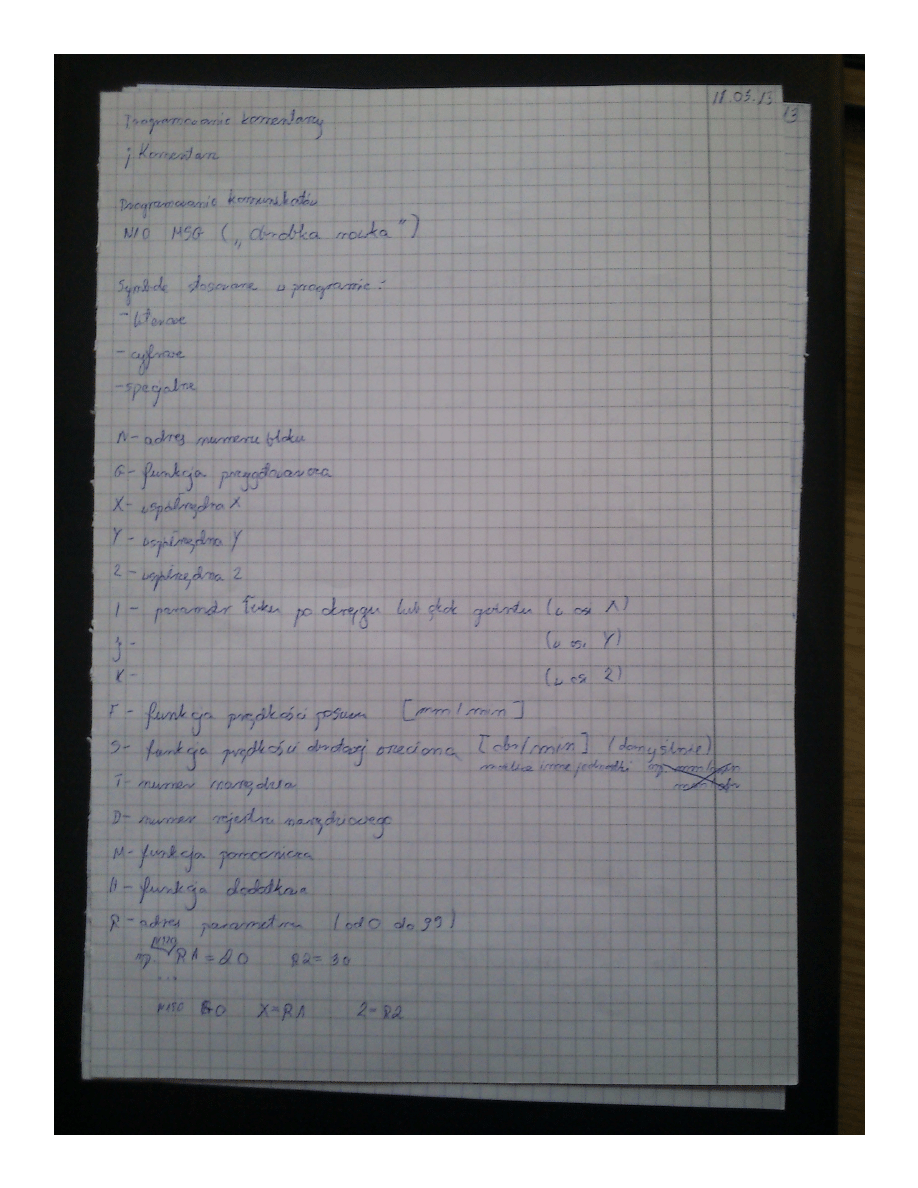 18.03.13
13
Programowanie komentarzy
; Komentarz
Programowanie komunikatów
N10 MSG („Obróbka rowka")
Symbole stosowane w programie:
- literowe
- cyfrowe
- specjalne
N - adres numeru bloku
G - funkcja przygotowawcza
X - współrzędna X
Y - współrzędna Y
Z - współrzędna Z
I - parametr łuku po okręgu lub skok gwintu (w osi X)
J - (w osi Y)
K - (w osi Z)
F - funkcja prędkości posuwu [mm/min]
S - funkcja prędkości obrotowej wrzeciona [obr/min] (domyślnie)
możliwe inne jednostki np. mm/min
mm/obr
T - numer narzędzia
D - numer rejestru narzędziowego
M - funkcja pomocnicza
H - funkcja dodatkowa
R - adres parametru (od 0 do 99)
np. R1=20 R2=30
...
N150 G0 X=R1 Z=R2